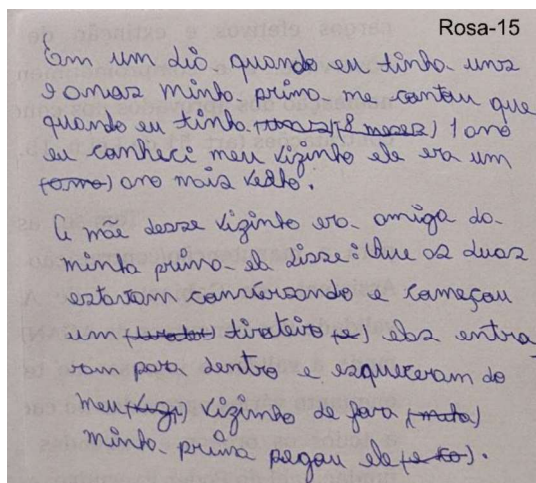 Rosa-15
Em um dia quando eu tinha uns
9 anos minha prima me contou que
quando eu tinha (8 meses) 1 ano
eu conheci meu vizinho ele era um
(amo) ano mais velho.
A mãe desse vizinho era amiga da
minha prima ela disse: Que as duas
estavam conversando e começou
um tiroteio (e) elas entra
ram para dentro e esqueceram do
meu (vizi) vizinho de fora (mata)
minha prima pegou ele.